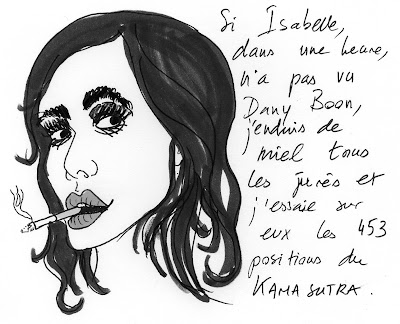 Si Isabelle,
dans une heure,
n'a pas vu
Dany Boon,
j'enduis de
miel tous
les jurés et
j'essaie sur
eux les 453
positions du
KAMA SUTRA.